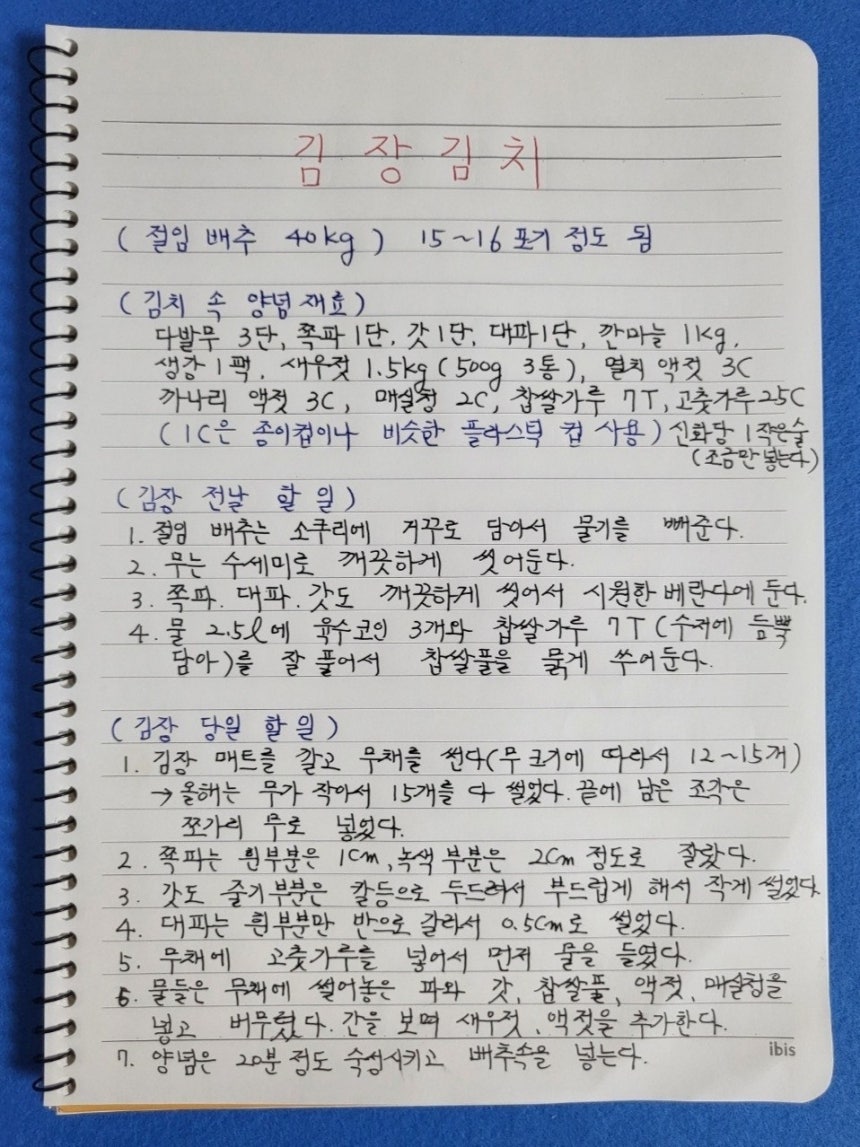 김장김치
(절임 배추 40kg) 15~16 포기 정도 됨
(김치 속 양념재료)
다발무 3단, 쪽파 1단, 갓 1단, 대파 1단, 깐마늘 1kg,
생강 1팩, 새우젓 1.5kg (500g 3통), 멸치 액젓 3C
까나리 액젓 3C, 매실청 2C, 찹쌀가루 7T, 고춧가루 25C
(1C은 종이컵이나 비슷한 플라스틱 컵 사용) 신화당 1작은술
(조금만 넣는다)
(김장 전날 할 일)
1. 절임 배추는 소쿠리에 거꾸로 담아서 물기를 빼준다.
2. 무는 수세미로 깨끗하게 씻어둔다.
3. 쪽파. 대파. 갓도 깨끗하게 씻어서 시원한 베란다에 둔다.
4. 물 2.5l에 육수코인 3개와 찹쌀가루 7T (수저에 듬뿍
담아)를 잘 풀어서 찹쌀풀을 묽게 쑤어둔다.
(김장 당일 할 일)
1. 김장 매트를 깔고 무채를 썬다(무 크기에 따라서 12~15개)
→ 올해는 무가 작아서 15개를 다 썰었다. 끝에 남은 조각은
쪼가리 무로 넣었다.
2. 쪽파는 흰부분은 1cm, 녹색 부분은 2cm 정도로 잘랐다.
3. 갓도 줄기부분은 칼등으로 두드려서 부드럽게 해서 작게 썰었다
4. 대파는 흰부분만 반으로 갈라서 0.5cm로 썰었다.
5. 무채에 고춧가루를 넣어서 먼저 물을 들였다.
6. 물들은 무채에 썰어놓은 파와 갓, 찹쌀풀, 액젓, 매실청을
넣고 버무렸다. 간을 보며 새우젓, 액젓을 추가한다.
7. 양념은 20분 정도 숙성시키고 배추속을 넣는다.
ibis